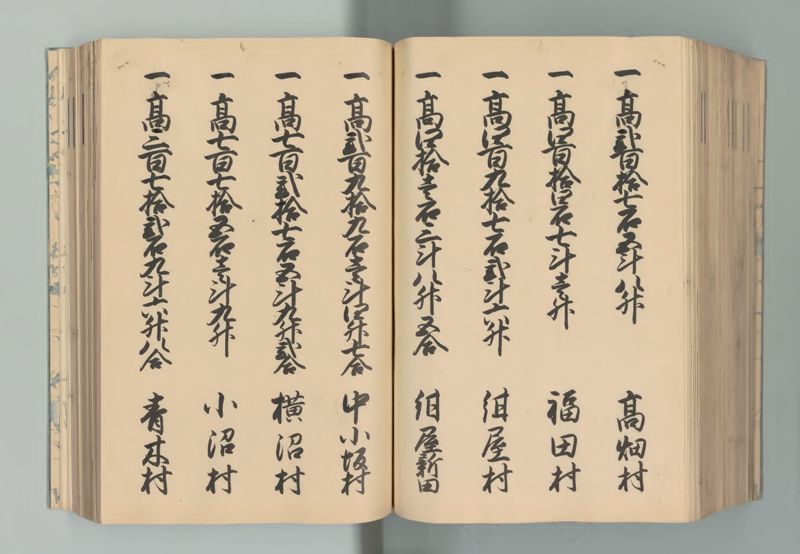 一 高弐百拾七石五斗八升 高畑村
一 高四百拾四石七斗壱升 福田村
一 高四百九拾七石弐斗六升 紺屋村
一 高四拾壱石三斗八升五合 紺屋新田
一 高弐百九拾九石壱斗四升七合 中小坂村
一 高七百弐拾七石五斗九升弐合 横沼村
一 高七百七拾五石壱斗九升 小沼村
一 高三百七拾弐石九斗六升八合 青木村